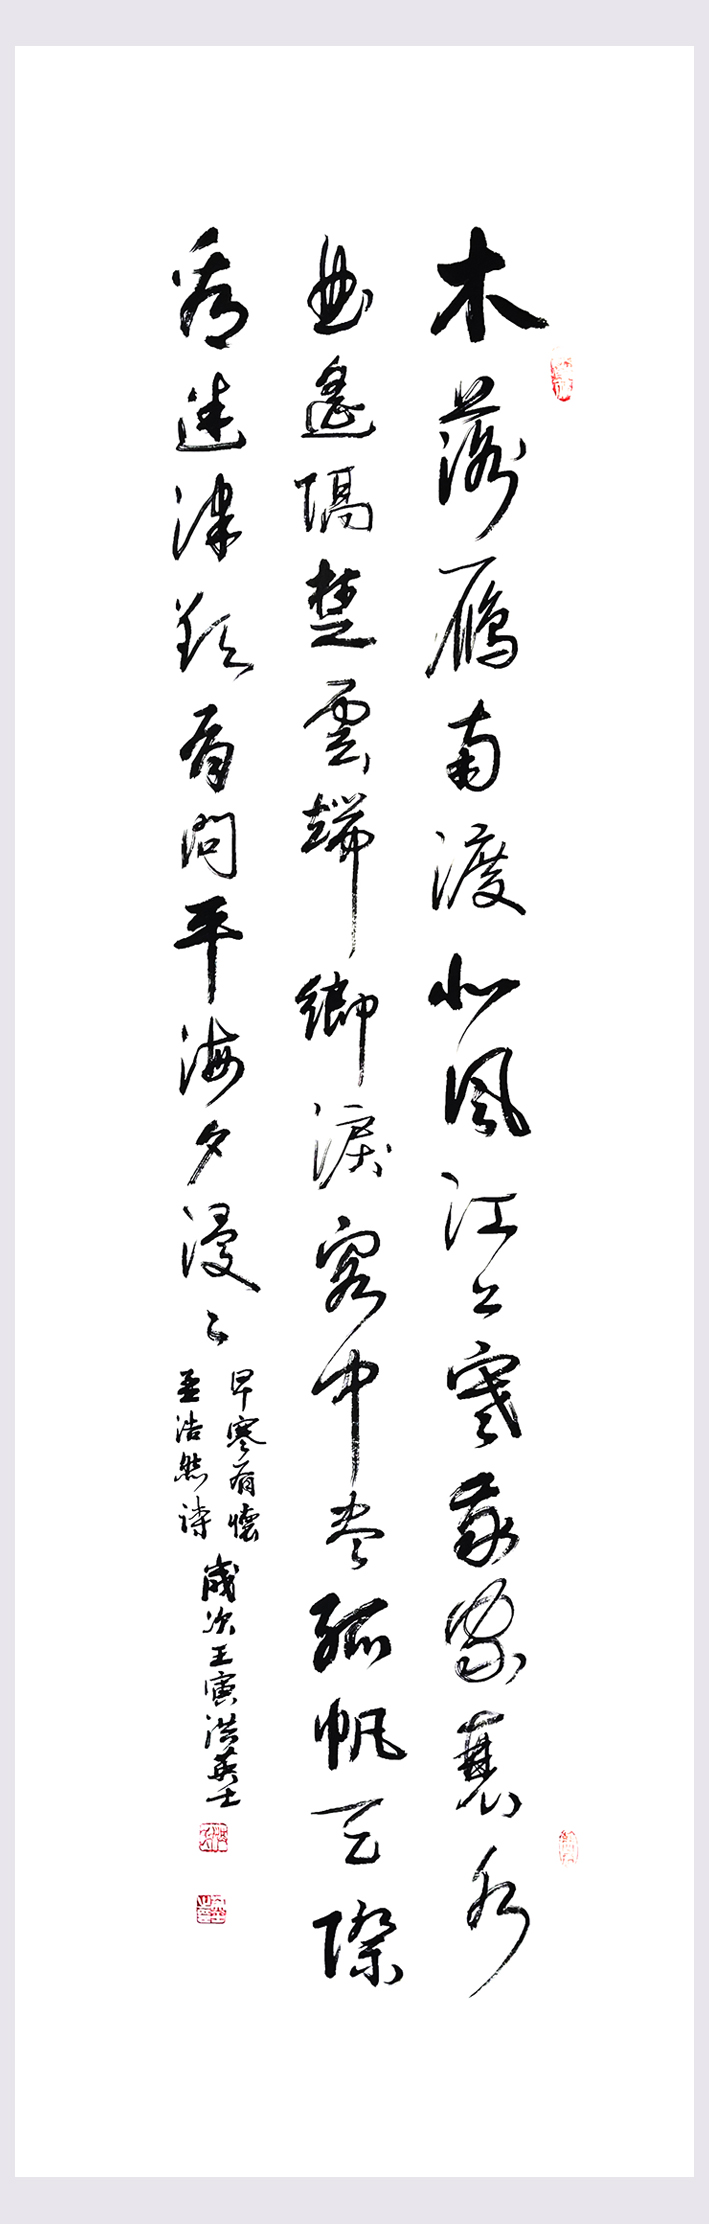 木落鴈南渡北風江上寒我家襄水
曲遙隔楚雲端鄉淚客中尽孤帆天際
看迷津欲有問平海夕漫々
早寒有懷
孟浩然詩
歲次壬寅洪英士